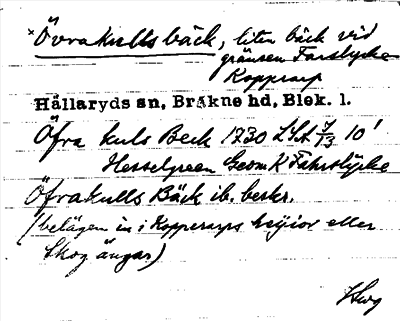 *Övrakulls bäck, liten bäck vid
gränsen Farslycke
Kopparp
Hällaryds sn, Bräkne hd, Blek. l.
Öfra kuls Beck 1730 LSA 10'
Hesselgreen Geom K Fahrslÿcke
Öfrakulls Bäck ib. beskr.
(belägen in i Kopperarps heijior eller
Skog ängar)